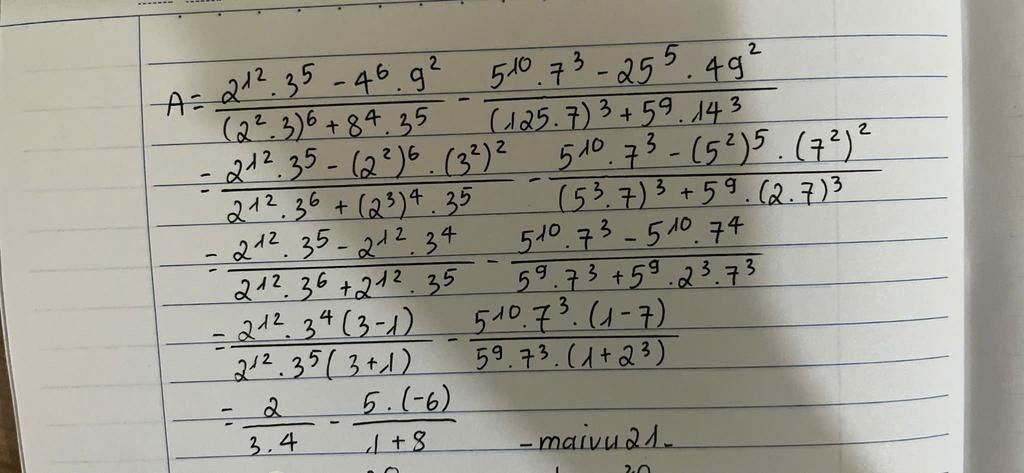 A = \frac{2^{12} . 3^5 - 4^6 . 9^2}{(2^2 . 3)^6 + 8^4 . 3^5} - \frac{5^{10} . 7^3 - 25^5 . 49^2}{(125 . 7)^3 + 5^9 . 14^3}
= \frac{2^{12} . 3^5 - (2^2)^6 . (3^2)^2}{2^{12} . 3^6 + (2^3)^4 . 3^5} - \frac{5^{10} . 7^3 - (5^2)^5 . (7^2)^2}{(5^3 . 7)^3 + 5^9 . (2 . 7)^3}
= \frac{2^{12} . 3^5 - 2^{12} . 3^4}{2^{12} . 3^6 + 2^{12} . 3^5} - \frac{5^{10} . 7^3 - 5^{10} . 7^4}{5^9 . 7^3 + 5^9 . 2^3 . 7^3}
= \frac{2^{12} . 3^4 (3 - 1)}{2^{12} . 3^5 (3 + 1)} - \frac{5^{10} . 7^3 . (1 - 7)}{5^9 . 7^3 . (1 + 2^3)}
= \frac{2}{3 . 4} - \frac{5 . (-6)}{1 + 8}
- maivu21 -